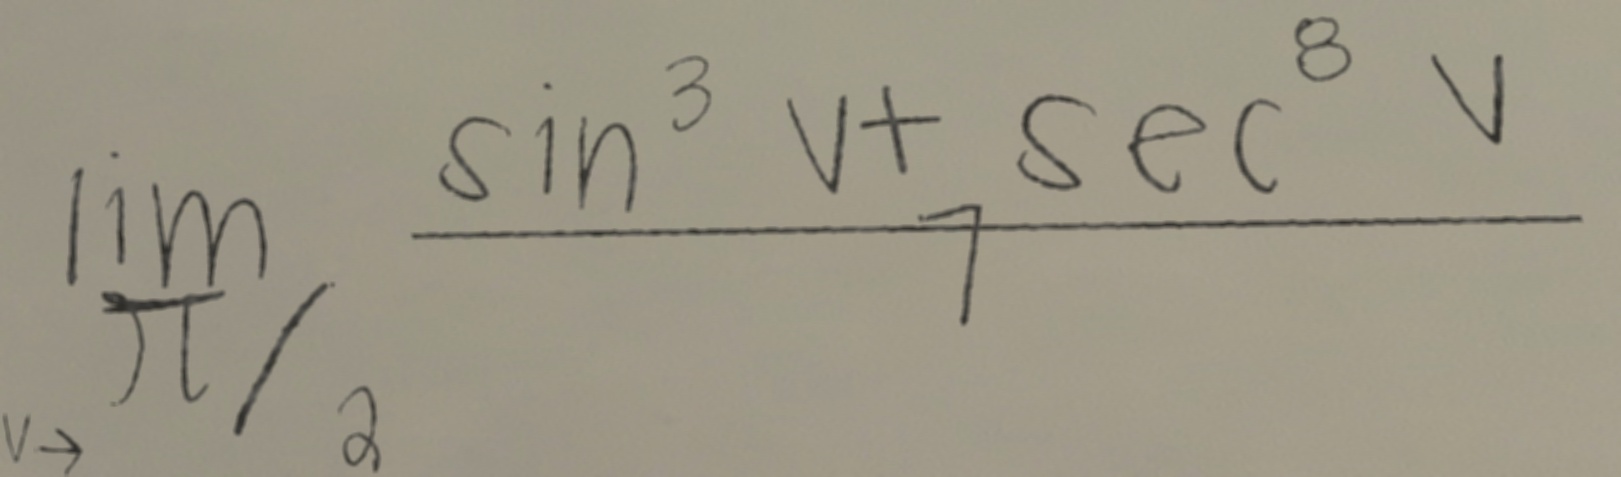 lim_{v→π/2} \frac{sin^3 v + sec^8 v}{7}